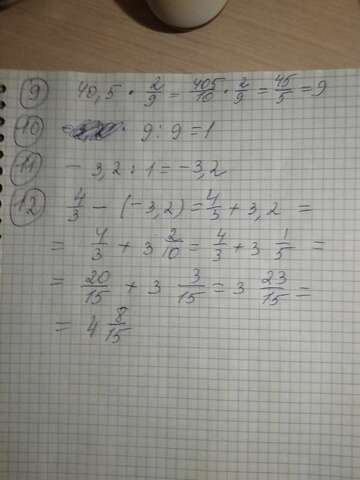 9 40,5 · 2/9 = 405/10 · 2/9 = 45/5 = 9
10 9 : 9 = 1
11 - 3,2 : 1 = -3,2
12 4/3 - (-3,2) = 4/3 + 3,2 =
= 4/3 + 3 2/10 = 4/3 + 3 1/5 =
= 20/15 + 3 3/15 = 3 23/15 =
= 4 8/15